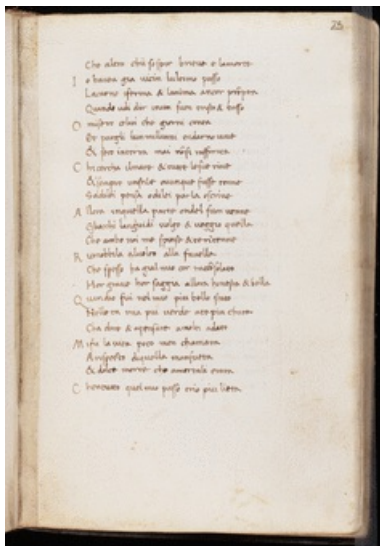 23
Che altro chũ sospir brieue e lamorte
I o hauea gia uicin lultimo passo
La carne iferma & lanima ancor prõpta
Quando udi dir inun suon tristo & basso
O misero colui che giorni conta
Et pargli lun millanni endarno uiue
Et seco interra mai nõsi raffronta
C hi cerchi ilmare & tutte lesue riue
Et sempre unstile ounque fusse tenne
Sol di lei pensa odilei parla oscriue
A llora inquella parte ondel suon uenne
Gliocchi languidi uolgo & ueggio quella
Che ambo noi me spinse & te ritenne
R iconobbila aluolto alla fauella
Che spesso ha gia il mio cor racõsolato
Hor graue hor saggia allora honesta & bella
Q uando fui nel mio piu bello stato
Nella eta mia piu uerde ate piu chara
Cha dire & apensare amolti adato
M i fu la uita poco men chamara
A rispecto di quella mansueta
& dolce morte che amortali e rara
C he 'n tutto quel mio passo erio piu lieta